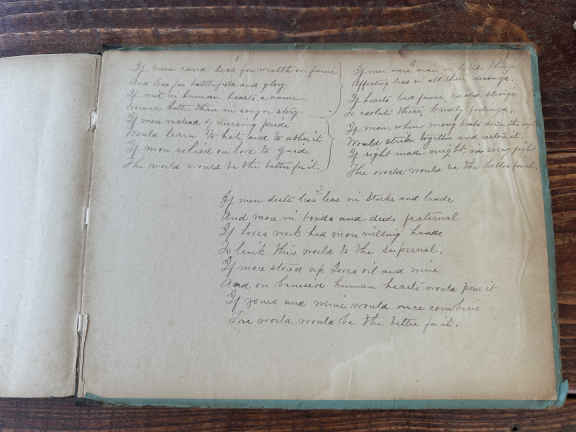 If men cared less for wealth and fame
And less for battlefields and glory
If writ in human hearts a name
Seemed better than in song or story
If men instead of nursing pride
Would learn to hate and to abhor it
If men relied on love to guide
The world would be the better for it.
If men were wise in little things
Affecting less in all their
If hearts had fewer rusted strings
To isolate their kindly feelings
If men when wrong beats down the right
Would strike together and restore it
If right made might in every fight
The world would be the better for it.
If men dealt less in stocks and lands
And more in bonds and deeds fraternal
If love's work had more willing hands
To link this world to the supernal.
If men stored up love's oil and wine
And on bruised human hearts would pour it
If yours and mine would once combine
The world would be the better for it.